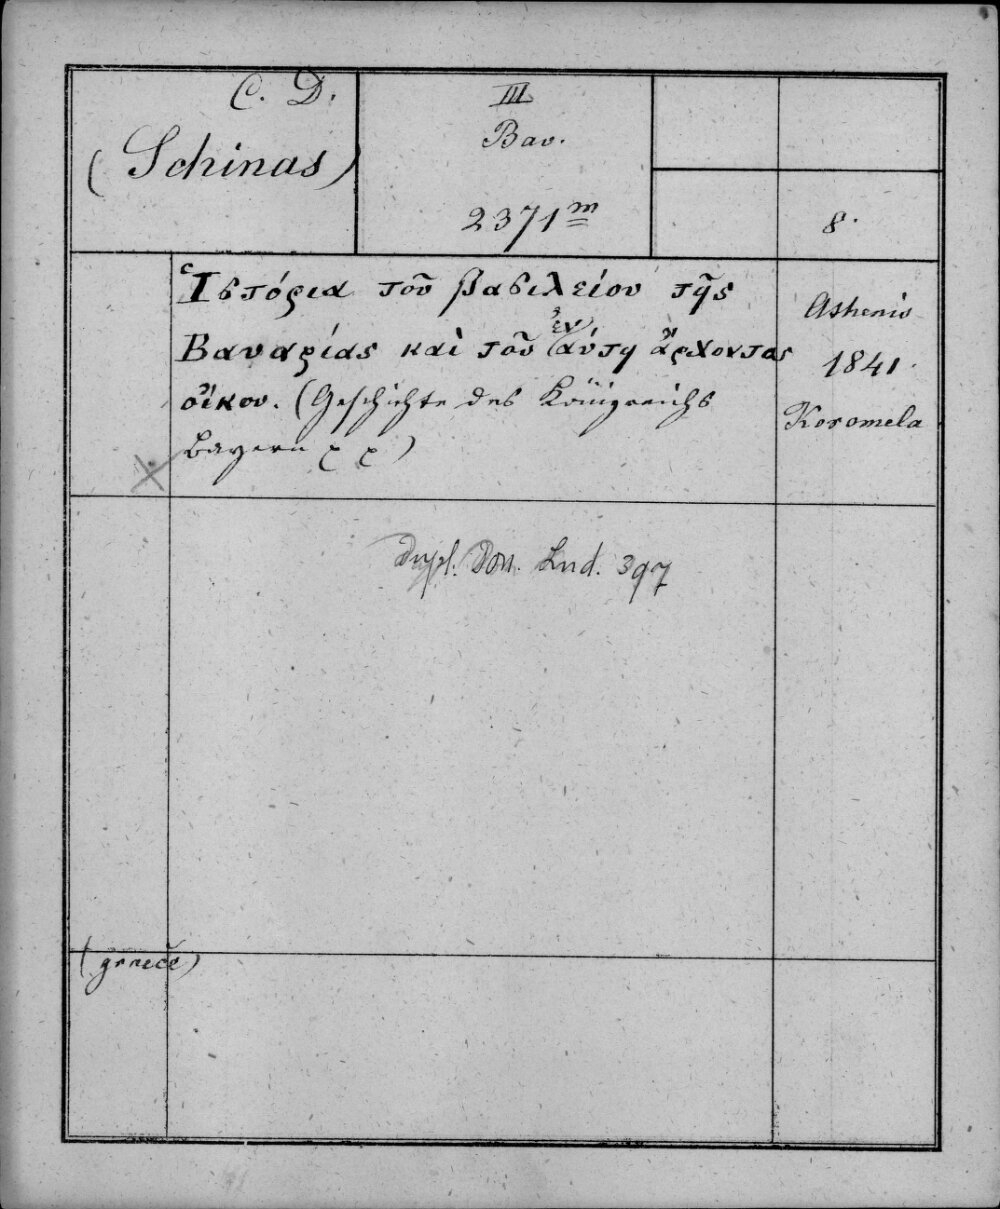 C. D.
(Schinas)
III
Bav.
2371 m
8.
Ἱστόρια τοῦ βασιλείου τῆς
Βαυαρίας καὶ τοῦ ἐν αύτη ἄρχοντας
οἴκου. (Geschichte des Königreichs
Bayern p p)
Athenis
1841.
Koromela
Dupl. Don. Lud. 397
(graece)